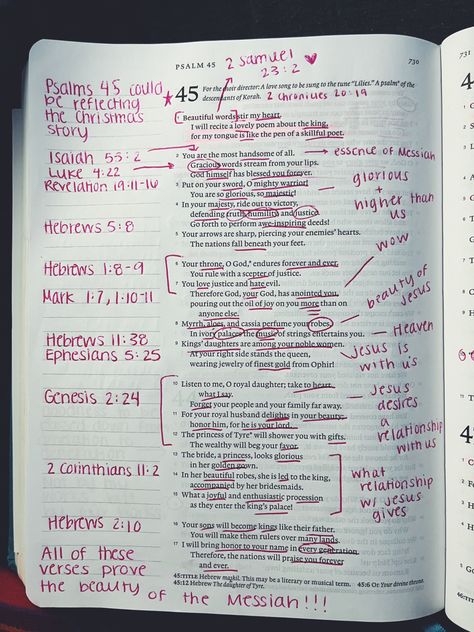 PSALM 45
729
730
2 Samuel
23:2
Psalms 45 could
be reflecting
the Christmas
story
45 For the choir director: A love song to be sung to the tune “Lilies.” A psalm* of the
descendants of Korah.
2 Chronicles 20:19
Beautiful words stir my heart.
I will recite a lovely poem about the king,
for my tongue is like the pen of a skillful poet.
Isaiah 53:2
Luke 4:22
Revelation 19:11-16
2 You are the most handsome of all.
Gracious words stream from your lips.
God himself has blessed you forever.
essence of Messiah
3 Put on your sword, O mighty warrior!
You are so glorious, so majestic!
4 In your majesty, ride out to victory,
defending truth, humility, and justice.
Go forth to perform awe-inspiring deeds!
glorious
+
higher than
us
Hebrews 5:8
5 Your arrows are sharp, piercing your enemies’ hearts.
The nations fall beneath your feet.
wow
Hebrews 1:8-9
6 Your throne, O God,* endures forever and ever.
You rule with a scepter of justice.
7 You love justice and hate evil.
Therefore God, your God, has anointed you,
pouring out the oil of joy on you more than on
anyone else.
Mark 1:7, 1:10-11
beauty of
Jesus
8 Myrrh, aloes, and cassia perfume your robes.
In ivory palaces the music of strings entertains you.
Heaven
Hebrews 11:38
Ephesians 5:25
9 Kings’ daughters are among your noble women.
At your right side stands the queen,
wearing jewelry of finest gold from Ophir!
Jesus is
with us
Genesis 2:24
10 Listen to me, O royal daughter; take to heart
what I say.
Forget your people and your family far away.
11 For your royal husband delights in your beauty;
honor him, for he is your lord.
12 The princess of Tyre* will shower you with gifts.
The wealthy will beg your favor.
Jesus
desires
a
relationship
with us
2 Corinthians 11:2
13 The bride, a princess, looks glorious
in her golden gown.
14 In her beautiful robes, she is led to the king,
accompanied by her bridesmaids.
15 What a joyful and enthusiastic procession
as they enter the king’s palace!
what
relationship
w/ Jesus
gives
Hebrews 2:10
16 Your sons will become kings like their father.
You will make them rulers over many lands.
17 I will bring honor to your name in every generation.
Therefore, the nations will praise you forever
and ever.
45:TITLE Hebrew maskil. This may be a literary or musical term. 45:6 Or Your divine throne.
45:12 Hebrew The daughter of Tyre.
All of these
verses prove
the beauty of the Messiah!!!